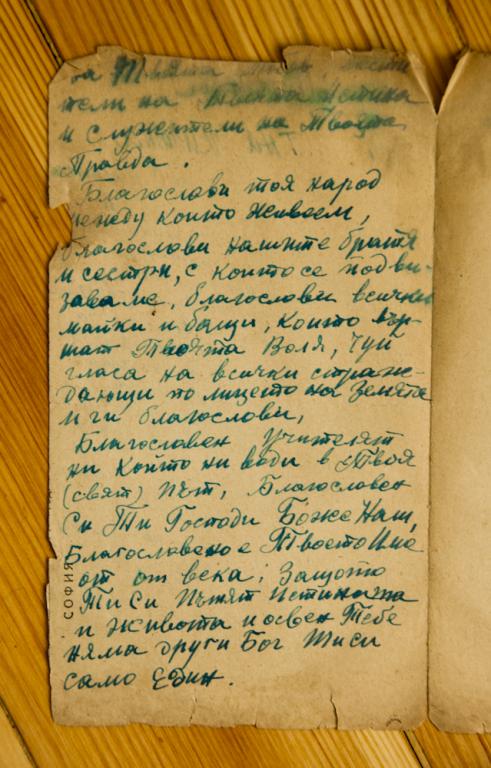 на Твоята
тели на Твоята Истина
и служители на Твоята
Правда.
Благослови тоя народ
между който живеем,
благослови нашите братя
и сестри, с които се подви-
заваме, благослови всички
майки и бащи, които вър-
шат Твоята Воля, чуй
гласа на всички страж-
дающи по лицето на Земята
и ги благослови,
Благословен Учителят
ни който ни води в Твоя
(свят) Път, Благословен
Си Ти Господи Боже Наш,
Благословено е Твоето Име
от от века; Защото
Ти Си Пътят Истината
и Живота и освен Тебе
няма други Бог Ти си
само Един.
СОФИЯ